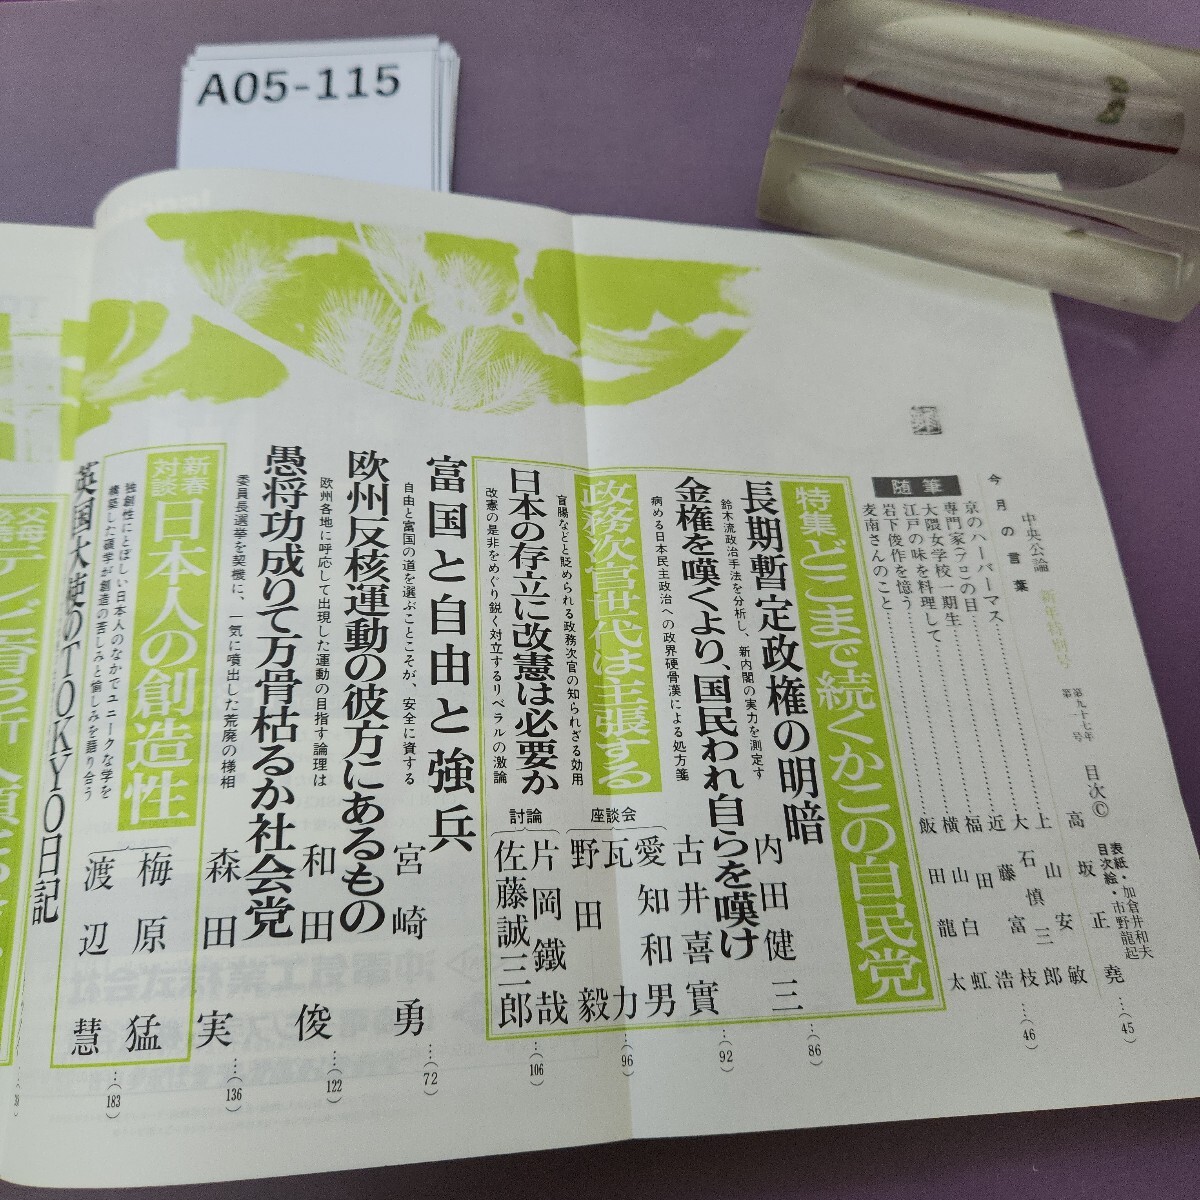 A05-115
中央公論 新年特別号
第九十七年
第一号
目次©
表紙・加倉井和夫
目次絵・市野龍起
今月の言葉
高坂正堯…(45)
随筆
京のハーバーマス
上山安敏
専門家〈デコ〉の日
大石慎三郎
大隈女学校一期生
近藤富枝
江戸の味を料理して
福田浩
岩下俊作を憶う
横山白虹
麦南さんのこと
飯田龍太
…(46)
特集どこまで続くかこの自民党
長期暫定政権の明暗
鈴木流政治手法を分析し、新内閣の実力を測定す
内田健三…(86)
金権を嘆くより、国民われ自らを嘆け
病める日本民主政治への政界硬骨漢による処方箋
古井喜實…(92)
政務次官世代は主張する
盲腸などと貶められる政務次官の知られざる効用
座談会
愛知和男
瓦力
野田毅
…(96)
日本の存立に改憲は必要か
改憲の是非をめぐり鋭く対立するリベラルの激論
討論
片岡鐵哉
佐藤誠三郎
…(106)
富国と自由と強兵
自由と富国の道を選ぶことこそが、安全に資する
宮崎勇…(72)
欧州反核運動の彼方にあるもの
欧州各地に呼応して出現した運動の目指す論理は
和田俊…(122)
愚将功成りて万骨枯るか社会党
委員長選挙を契機に、一気に噴出した荒廃の様相
森田実…(136)
新春対談
日本人の創造性
独創性にとぼしい日本人のなかでユニークな学を
構築した碩学が創造の苦しみと愉しみを語り合う
梅原猛
渡辺慧
…(183)
英国大使のTOKYO日記